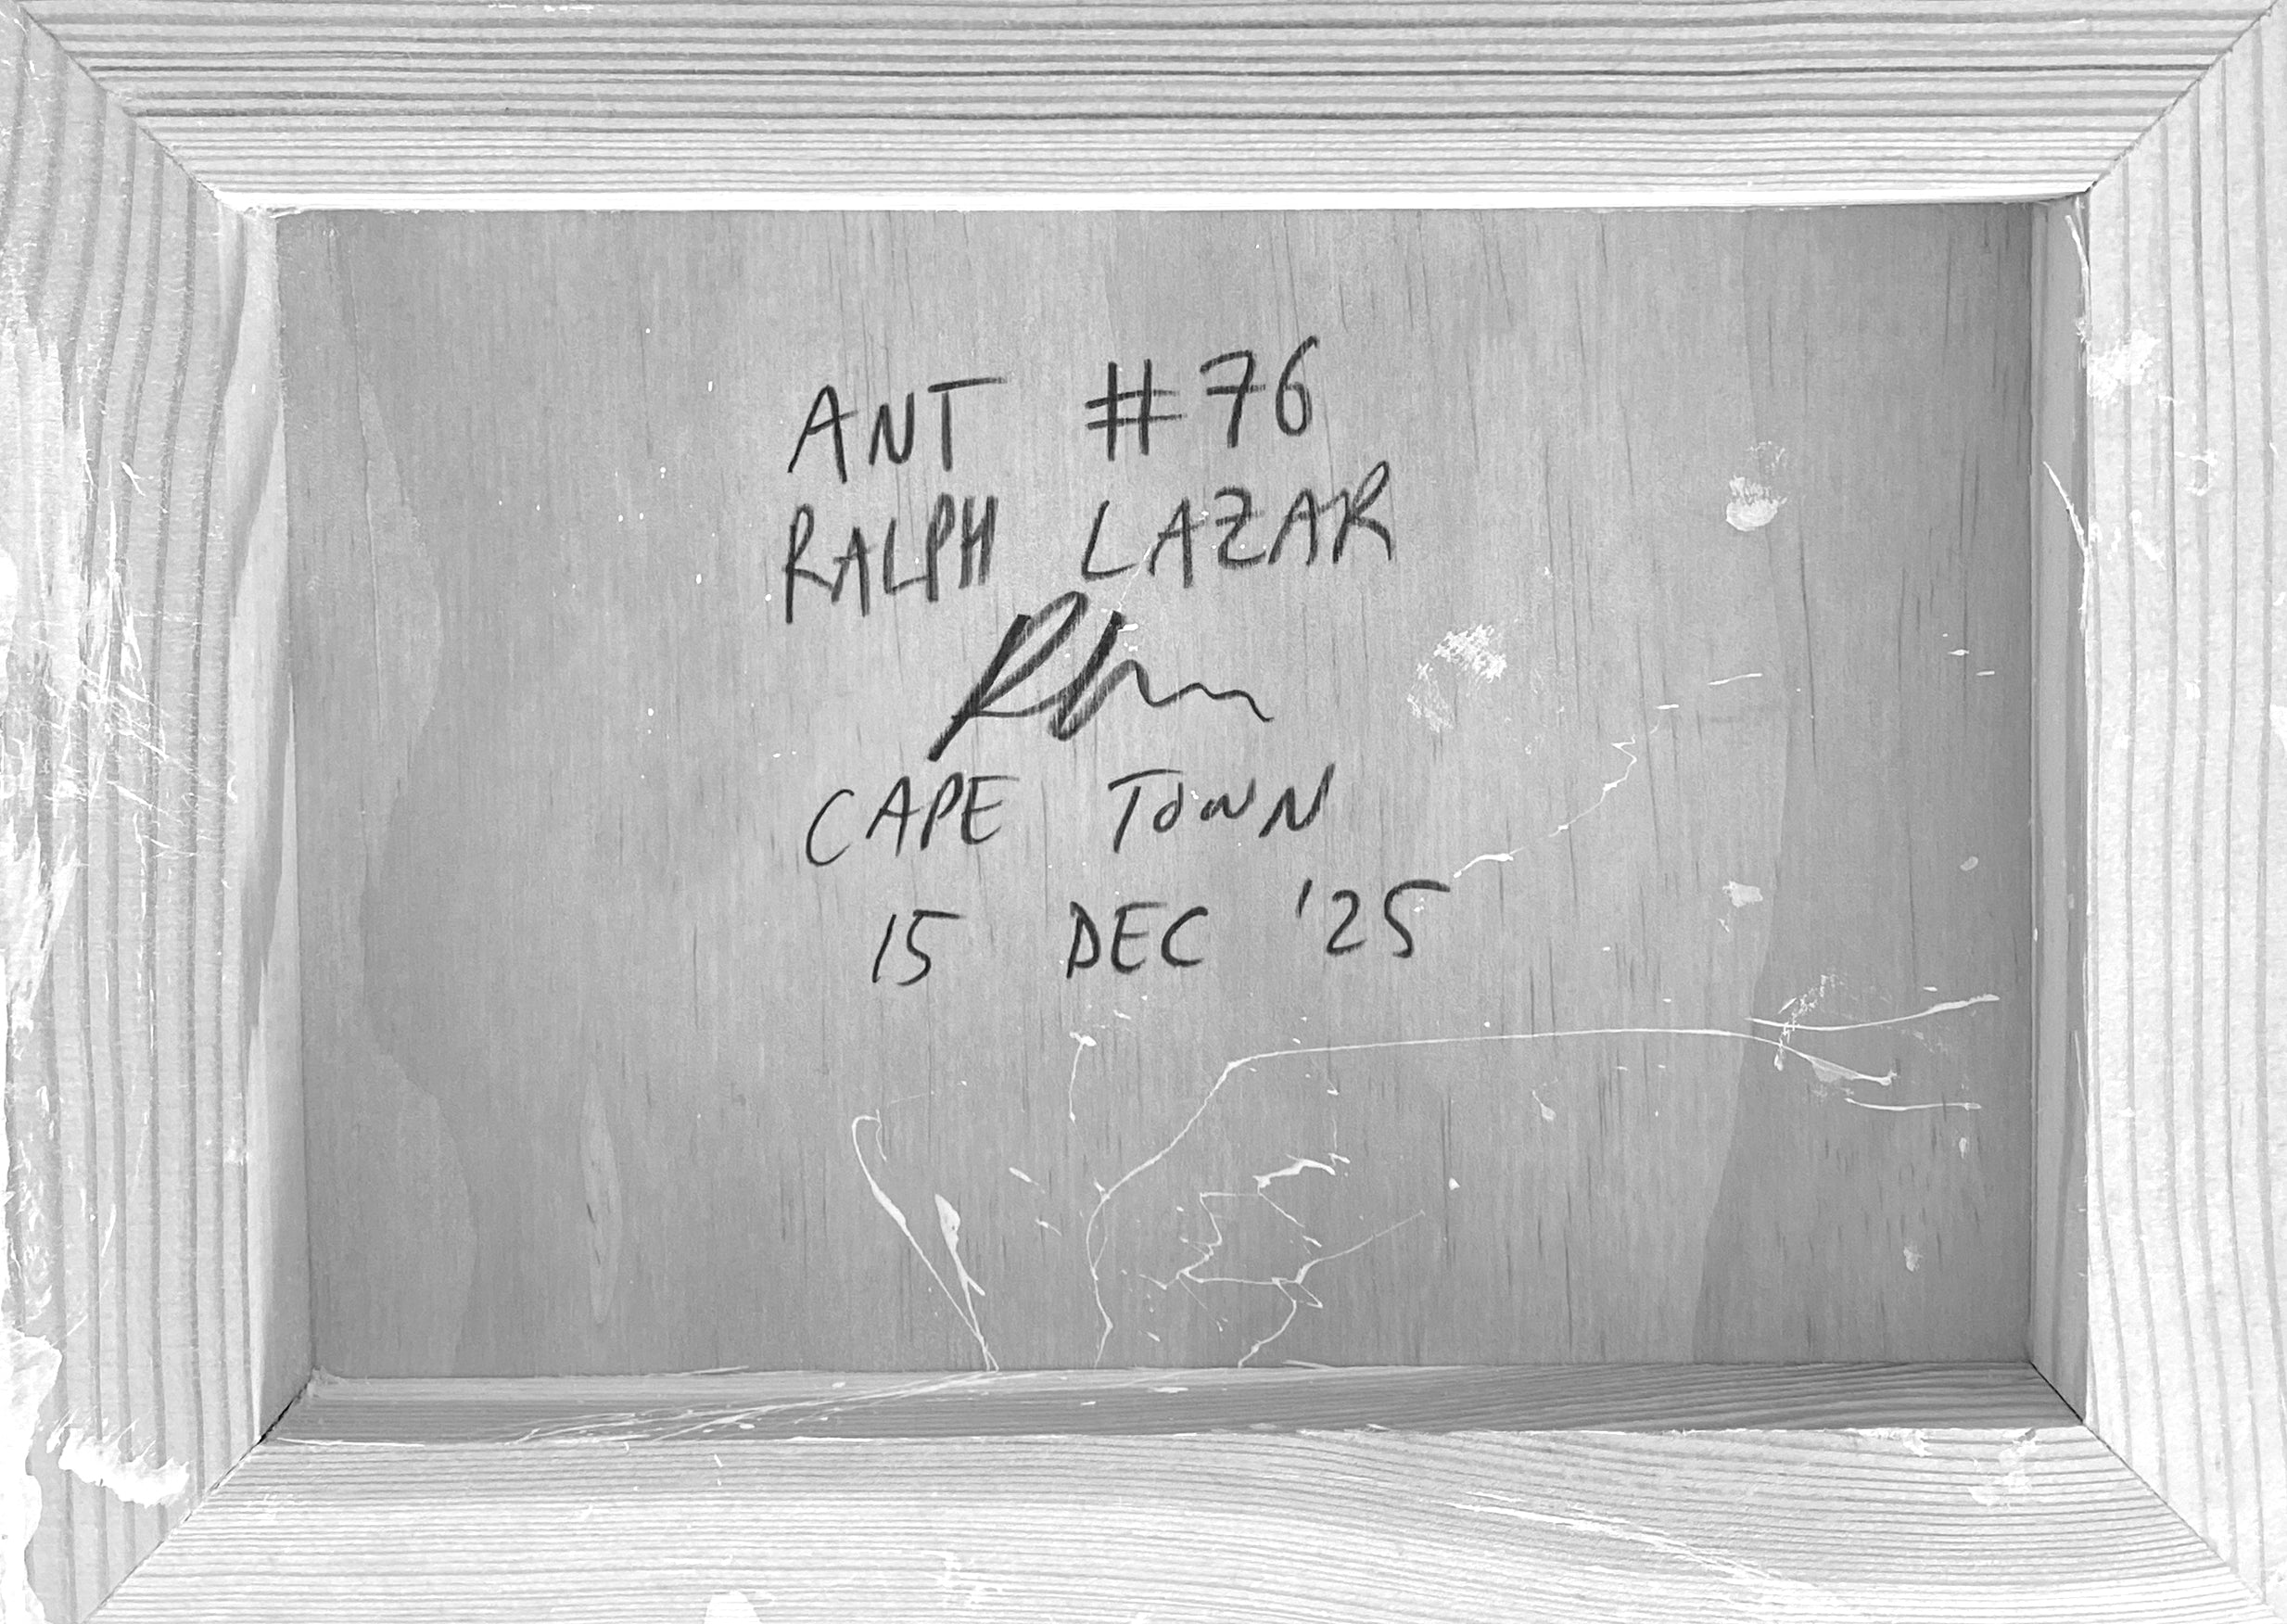 ANT #76
RALPH LAZAR
CAPE TOWN
15 DEC '25